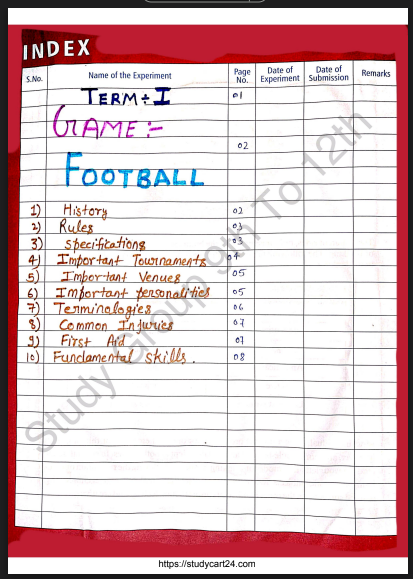 INDEX
S.No. Name of the Experiment Page No. Date of Experiment Date of Submission Remarks
TERM ÷ I 01
GAME :-
02
FOOTBALL
1) History 02
2) Rules 03
3) specifications 03
4) Important Tournaments 04
5) Important Venues 05
6) Important personalities 05
7) Terminologies 06
8) Common Injuries 07
9) First Aid 07
10) Fundamental skills. 08
Study Group 9th To 12th
https://studycart24.com